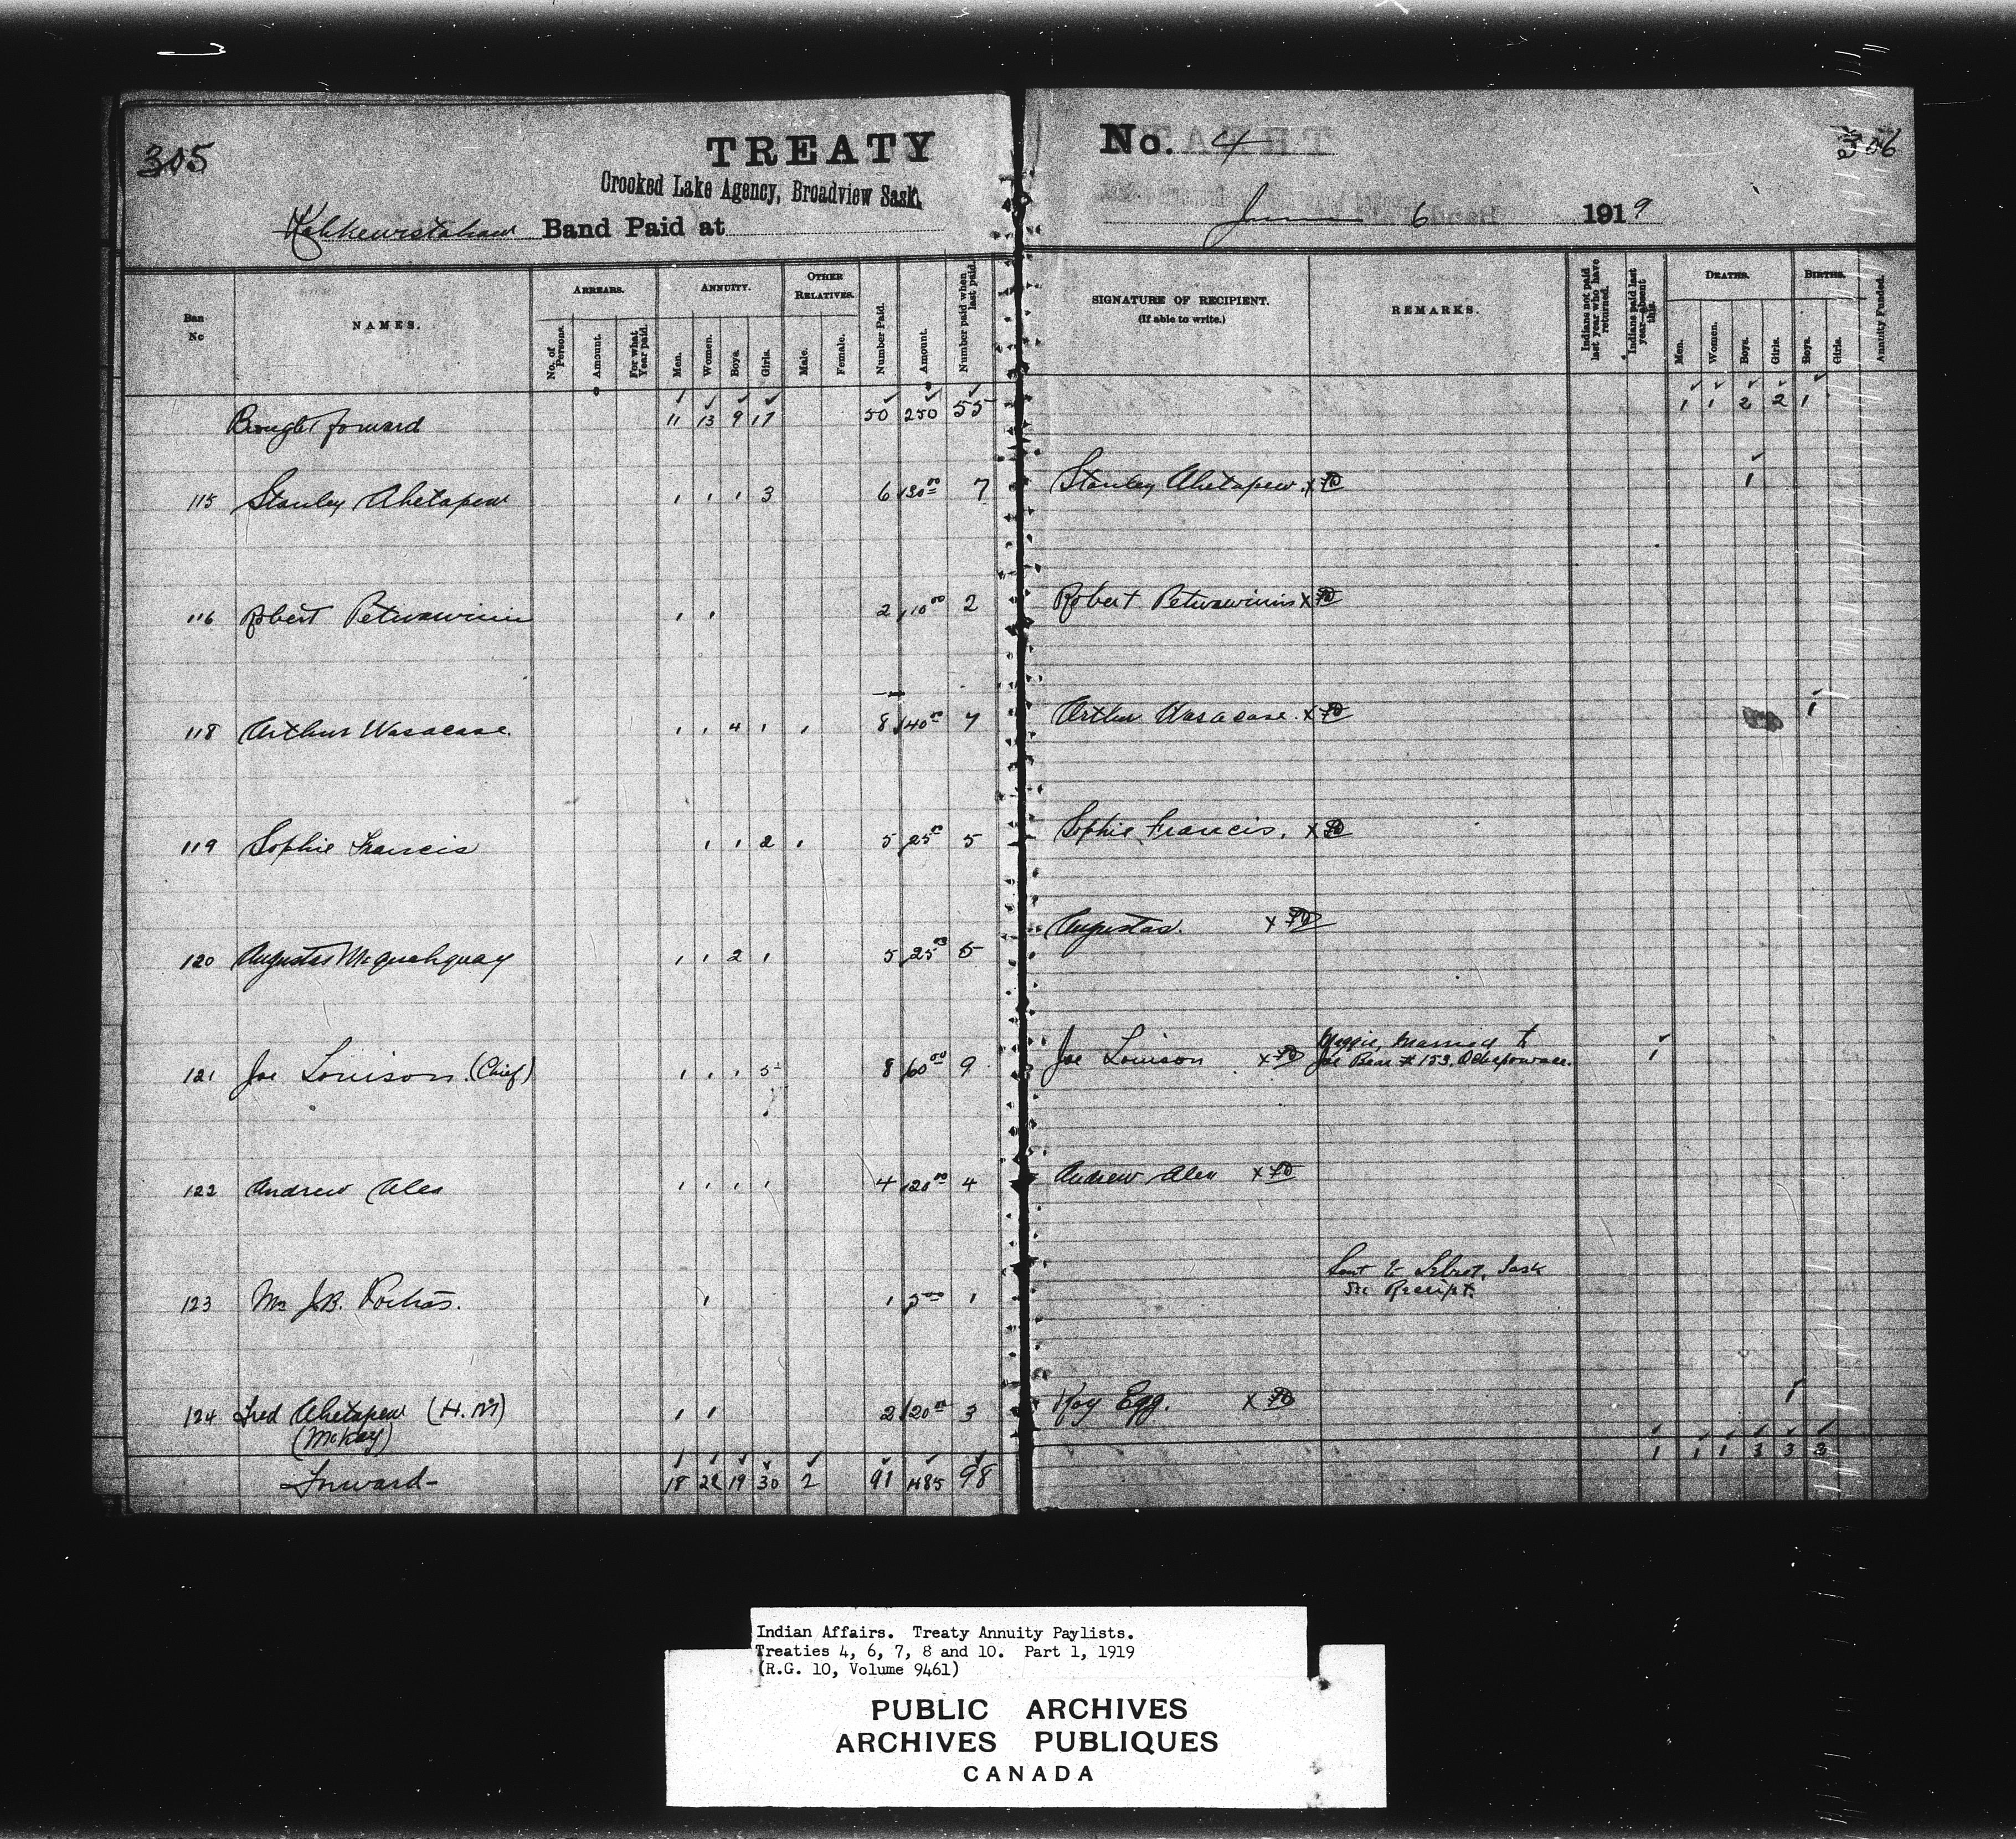 305
TREATY
Crooked Lake Agency, Broadview Sask.
Kahkewistahaw Band Paid at
No. 4
306
June 6 1919
Ban No
NAMES.
ARREARS.
No. of Persons.
Amount.
For what Year paid.
ANNUITY.
Men.
Women.
Boys
Girls.
OTHER RELATIVES.
Male.
Female.
Number Paid.
Amount.
Number paid when last paid.
SIGNATURE OF RECIPIENT.
(If able to write.)
REMARKS.
Indians not paid last year who have returned.
Indians paid last year—absent this.
DEATHS.
Men.
Women.
Boys.
Girls.
BIRTHS.
Boys.
Girls.
Annuity Funded.
Brought forward 11 13 9 17 50 250 55 1 1 2 2 1
115 Stanley Ahetapew 1 1 1 3 6 30.00 7 Stanley Ahetapew. x 1
116 Robert Petwawinin 1 1 2 10.00 2 Robert Petwawinin x
118 Arthur Wasacase. 1 1 4 1 1 8 40.00 7 Arthur Wasacase. x 1
119 Sophie Francis 1 1 2 1 5 25.00 5 Sophie Francis. x
120 Augustas McQuahquay 1 1 2 1 5 25.00 5 Augustas. x
121 Joe Louison. (Chief) 1 1 1 5 8 60.00 9 Joe Louison x Maggie, married to 1
Joe Bear # 153, Ochapowace.
122 Andrew Alex 1 1 1 1 4 20.00 4 Andrew Alex x
123 Mrs J.B. 1 1 5.00 1 Sent to Lebret, Sask
See Receipt.
124 Fred Ahetapew (H.M) 1 1 2 20.00 3 Roy Egg. x 1
(McKay)
Forward- 18 22 19 30 2 91 485 98 1 1 1 3 3 2
Indian Affairs. Treaty Annuity Paylists.
Treaties 4, 6, 7, 8 and 10. Part 1, 1919
(R.G. 10, Volume 9461)
PUBLIC ARCHIVES
ARCHIVES PUBLIQUES
CANADA